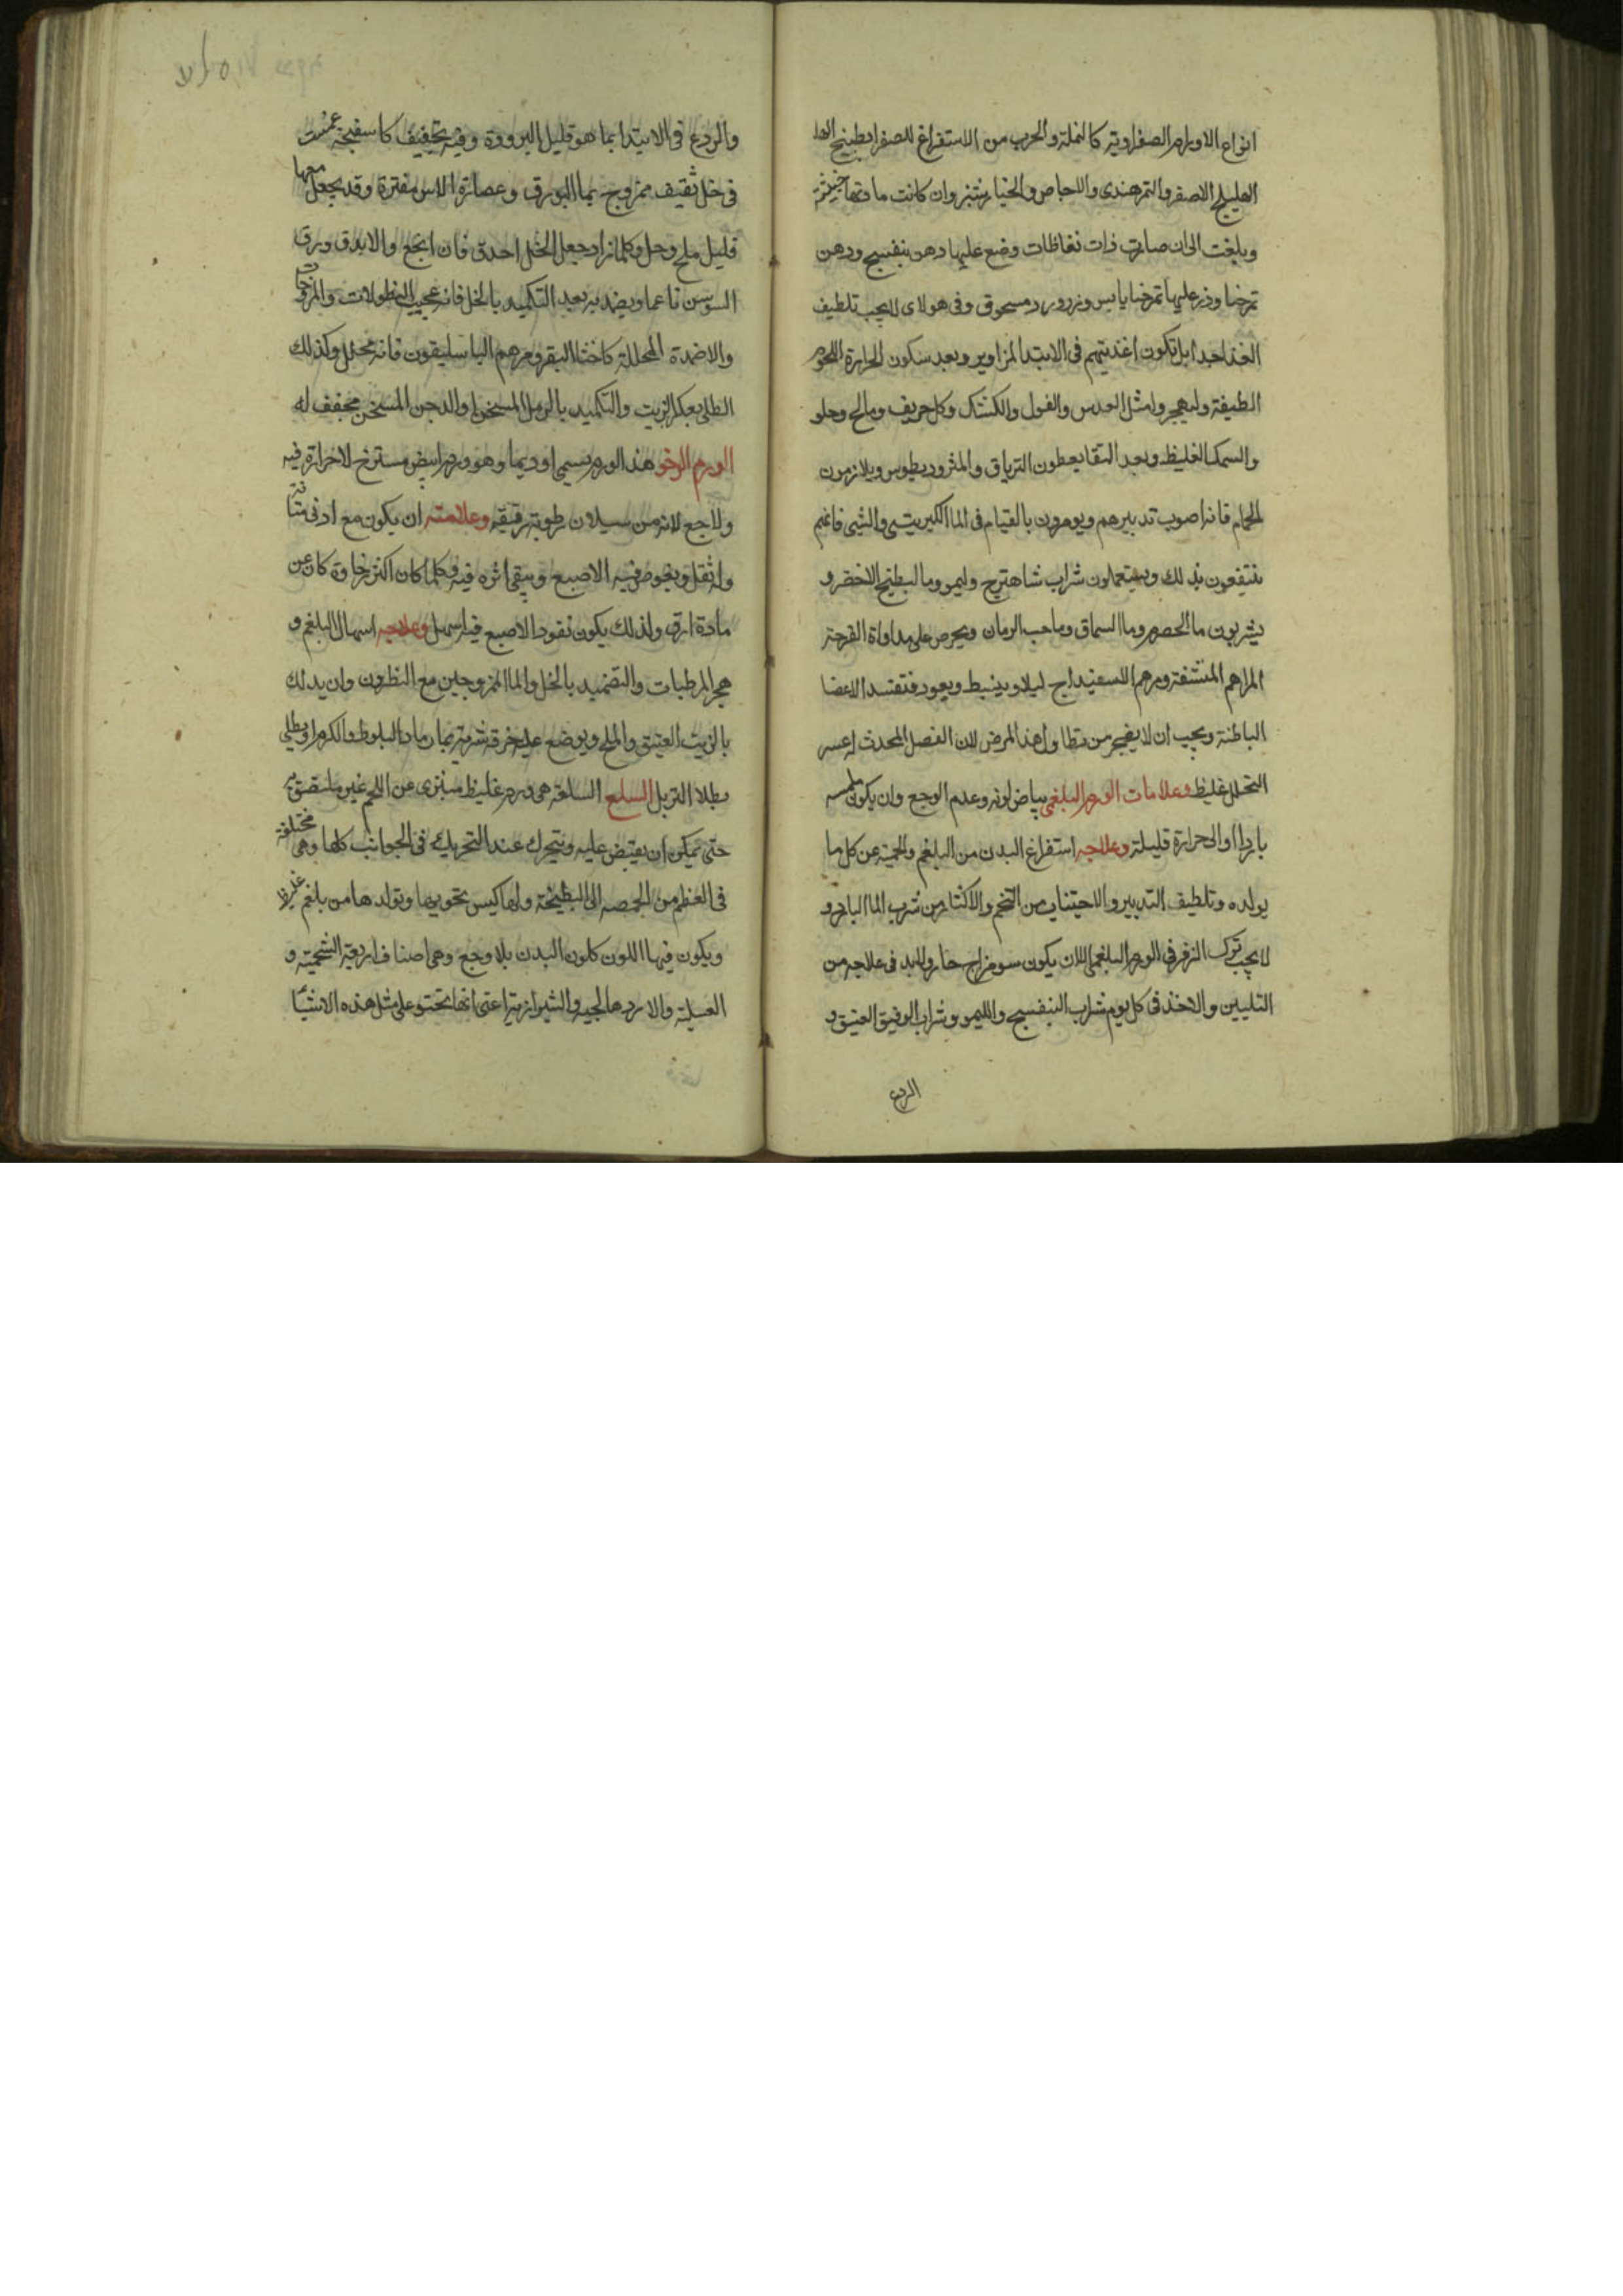 انواع الاورام الصفراوية كالنملة والحرب من الاستفراغ للصفرا بطبيخ
الهليلج الاصفر والتمرهندى والاجاص والخيارشنبر وان كانت مادتها خبيثة
وبلغت الى ان صارت ذات نفاطات وضع عليها دهن بنفسج ودهن
تمرحنا وذر عليها تمرحنا يابس وزرورد مسحوق وفى هولاى لا يجب تلطيف
الغذا جدا بل تكون اغذيتهم فى الابتدا المزاوير وبعد سكون الحرارة اللحوم
الطيفة وليهجروا مثل العدس والفول والكشك وكل حريف ومالح وحلو
والسمك الغليظ وبعد النقا يعطون الترياق والمثروديطوس ويلازمون
الحمام فانه اصوب تدبيرهم ويومرون بالقيام فى الما الكبريتى والشبى فانهم
ينتفعون بذلك ويستعملون شراب شاهترج وليمو وما البطيخ الاخضر و
يشربون ما الحصرم وما السماق وماحب الرمان ويحرص على مداواة القرحة
المراهم المنشفة ومرهم الاسفيداج ليلا وينبسط ويعود فتفسد الاعضا
الباطنة ويجب ان لا يضجر من تطاول هذا المرض لان الفصل المحدث له عسر
التحلل غليظ وعلامات الورم البلغمى بياض لونه وعدم الوجع وان يكون ملمسه
باردا او الى حرارة قليلة وعلاجه استفراغ البدن من البلغم والحمية عن كل ما
يولده وتلطيف التدبير والاجتناب من التخم والاكثار من شرب الما البارد و
لا يجب ترك الزفر فى الورم البلغمى الا ان يكون سو مزاج حار ولا بد فى علاجه من
التليين والاخذ فى كل يوم شراب البنفسج والليمو وشراب الوفيق العتيق و
الردع
والردع فى الابتدا بما هو قليل البرودة وفيه تجفيف كاسفنجة غمست
فى خل ثقيف ممزوج بما البورق وعصارة الاس مفترة وقد يجعل معها
قليل ملح وحل وكلما زاد جعل الخل احدق فان انجع والا يدق ورق
السوسن ناعما ويضمد به بعد التكميد بالخل فانه عجيب النطولات والمروخات
والاضمدة المحللة كاخثا البقر ومرهم الباسليقون فانه محلل وكذلك
الطلى بعكر الزيت والتكميد بالرمل المسخن والدجن المسخن مجفف له
الورم الرخو هذا الورم يسمى اوديما وهو ورم ابيض مسترخ لاحرارة فيه
ولا وجع لانه من سيلان رطوبة رقيقة وعلامته ان يكون مع ادنى متانة
وله ثقل ويغوص فيه الاصبع ويبقى اثره فيه فكلما كان اكثر رخاوة كان عن
مادة ارق ولذلك يكون نفود الاصبع فيه اسهل وعلاجه اسهال البلغم و
هجر المرطبات والتضميد بالخل والما الممزوجين مع النطرون وان يدلك
بالزيت العتيق والملح ويوضع عليه خرقة شربة بما رماد البلوط والكرم او يطلى
بطلا التربل السلع السلعة هى ورم غليظ متبرى عن اللحم غير ملتصق به
حتى يمكن ان يقبض عليه ويتحرك عند التحريك فى الجوانب كلها وهى مختلفة
فى العظم من الحمصه الى البطيخة ولها كيس يحويها وتولدها من بلغم غليظ
ويكون فيها اللون كلون البدن بلا وجع وهى اصناف اربعة الشحمية و
العسلية والاردهالجية والشيرازية اعنى انها تحتوى على مثل هذه الاشيا